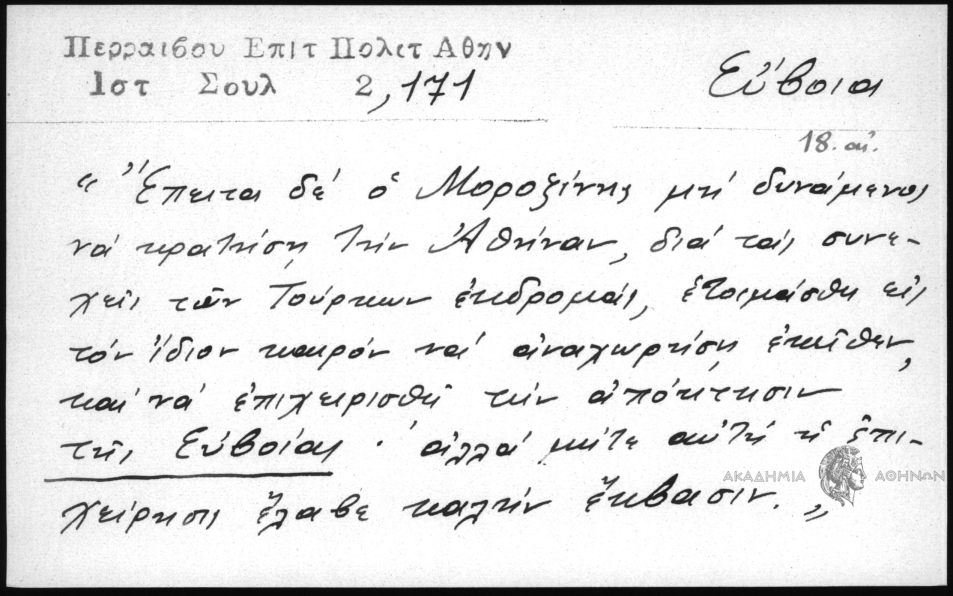 Περραιβου Επιτ Πολιτ Αθην
Ιστ Σουλ 2, 171
Εὔβοια
18. αἰ.
“Ἔπειτα δέ ὁ Μοροζίνης μή δυνάμενος
νά κρατήσῃ τήν Ἀθήναν, διά τάς συνε-
χεῖς τῶν Τούρκων ἐκδρομάς, ἑτοιμάσθη εἰς
τόν ἴδιον καιρόν νά ἀναχωρήσῃ ἐκεῖθεν,
καί νά ἐπιχειρισθῇ τήν ἀπόκτησιν
τῆς Εὐβοίας · ἀλλά μήτε αὐτή ἡ ἐπι-
χείρησις ἔλαβε καλήν ἔκβασιν.„
ΑΚΑΔΗΜΙΑ ΑΘΗΝΩΝ